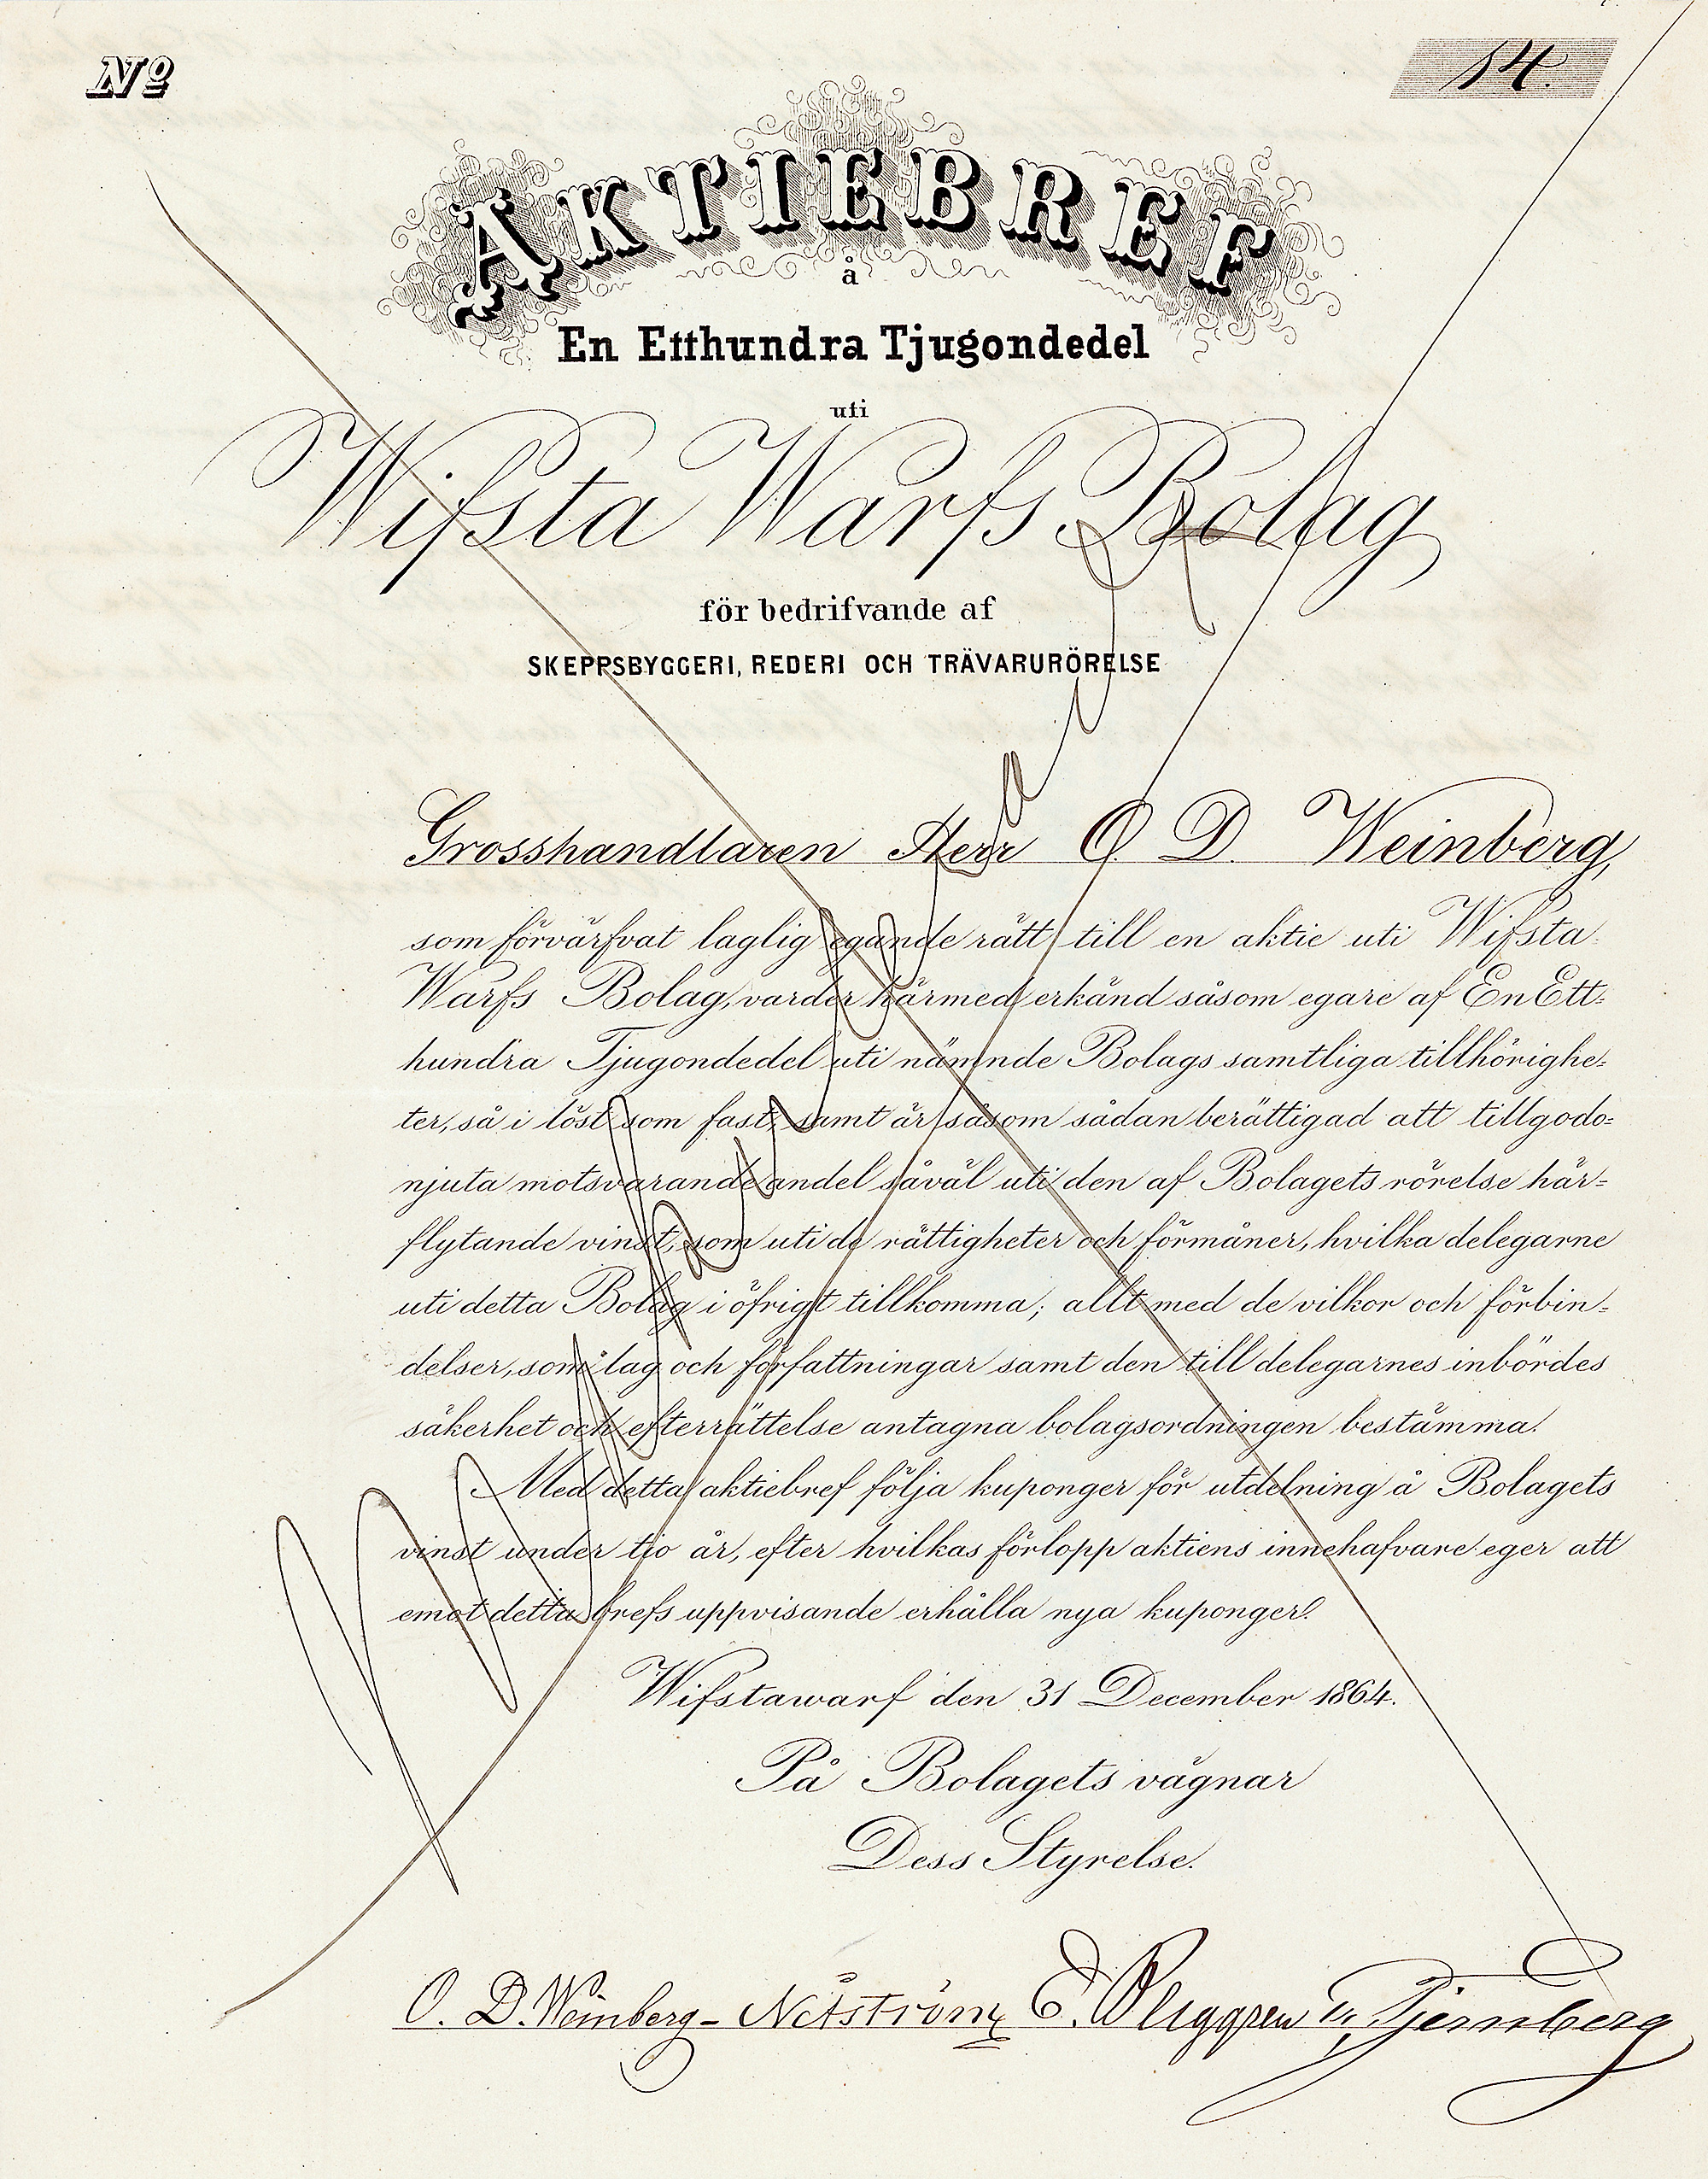 Nº 54.
AKTIEBREF
å
En Etthundra Tjugondedel
uti
Wifsta Warfs Bolag
för bedrifvande af
SKEPPSBYGGERI, REDERI OCH TRÄVARURÖRELSE
Grosshandlaren Herr O. D. Weinberg,
som förvärfvat laglig egande rätt till en aktie uti Wifsta
Warfs Bolag, varder härmed erkänd såsom egare af En Ett=
hundra Tjugondedel uti nämnde Bolags samtliga tillhörighe=
ter, så i löst som fast, samt är såsom sådan berättigad att tillgodo=
njuta motsvarande andel såväl uti den af Bolagets rörelse här=
flytande vinst, som uti de rättigheter och förmåner, hvilka delegarne
uti detta Bolag i öfrigt tillkomma; allt med de vilkor och förbin=
delser, som lag och författningar samt den till delegarnes inbördes
säkerhet och efterrättelse antagna bolagsordningen bestämma.
Med detta aktiebref följa kuponger för utdelning å Bolagets
vinst under tio år, efter hvilkas förlopp aktiens innehafvare eger att
emot detta brefs uppvisande erhålla nya kuponger.
Wifstawarf den 31 December 1864.
På Bolagets vägnar
Dess Styrelse.
O. D. Weinberg